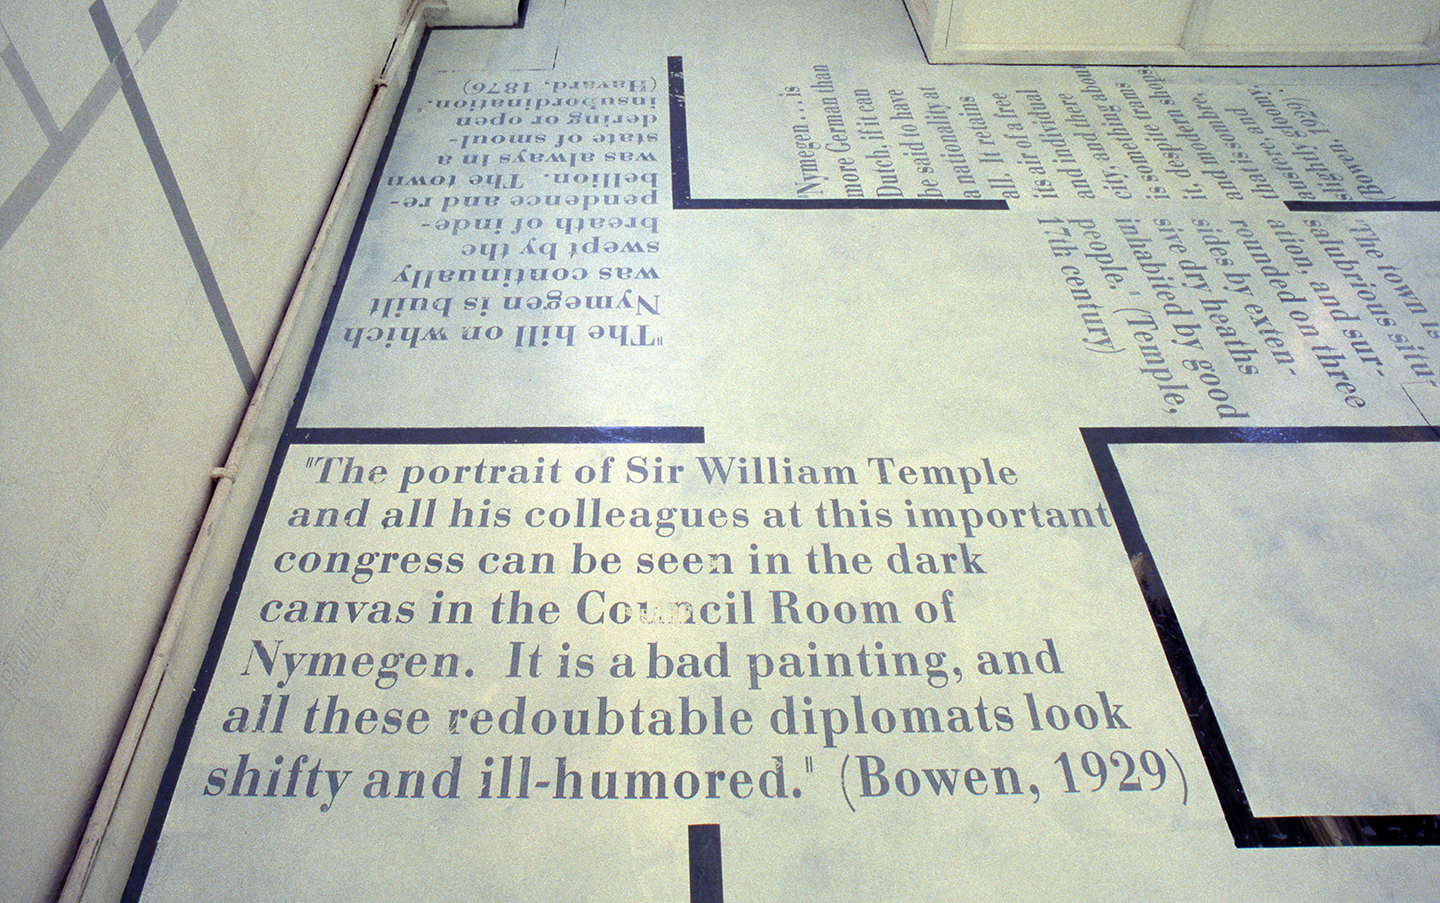 "The hill on which
Nymegen is built
was continually
swept by the
breath of inde-
pendence and re-
bellion. The town
was always in a
state of smoul-
dering or open
insubordination."
(Havard, 1876)
"Nymegen . . . is
more German than
Dutch, if it can
be said to have
a nationality at
all. It retains
its air of a free
and individual
city, and there
is something about
it, despite trams
and modern shops,
that is sombre,
austere, and
slightly gloomy."
(Bowen, 1929)
"The town is
salubrious situ-
ation, and sur-
rounded on three
sides by exten-
sive dry heaths
inhabited by good
people." (Temple,
17th century)
"The portrait of Sir William Temple
and all his colleagues at this important
congress can be seen in the dark
canvas in the Council Room of
Nymegen. It is a bad painting, and
all these redoubtable diplomats look
shifty and ill-humored." (Bowen, 1929)